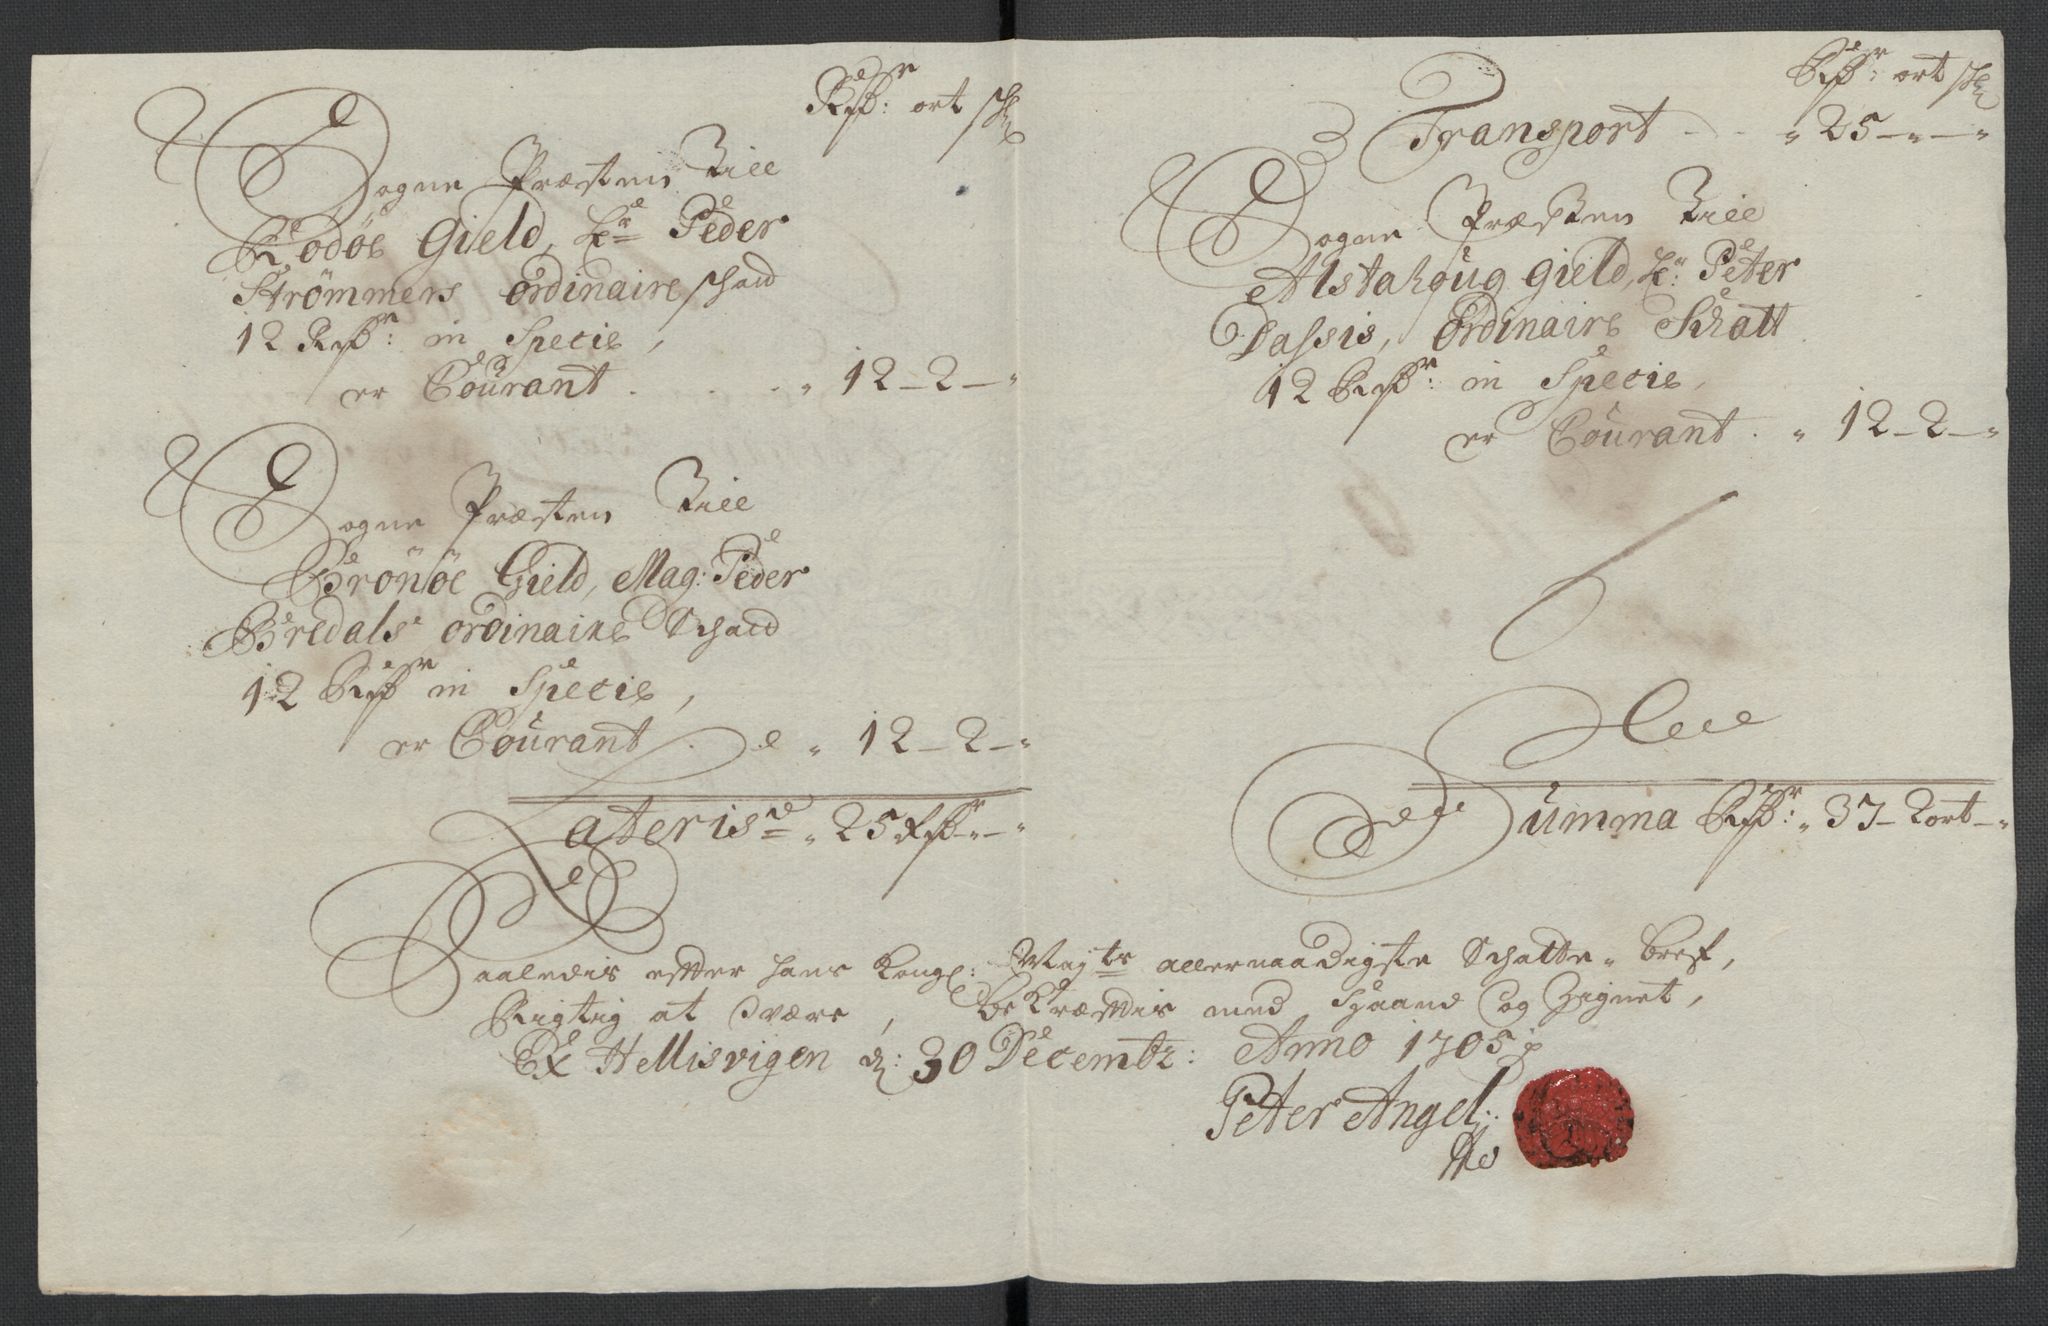 Rdlr: ort sh
Sogne Præsten Till
Rodöe Gield, Hr Peder
Strömmers ordinaire schatt
12 Rdlr: in Specie,
er Courant . . . „ 12 – 2 – „
Sogne Præsten Till
Brönöe Gield, Mag: Peder
Bredals ordinaire Schatt
12 Rdlr in Specie,
er Courant . „ 12 – 2 – „
Lateris „ 25 Rdlr „ – „
Rdlr: ort sh
Transport - - „ 25 – „ – „
Sogne Præsten Till
Alstahoug gield, Hr: Peter
Dassis, ordinaire Skatt
12 Rdlr: in Specie,
er Courant . „ 12 – 2 – „
Summa Rdlr: „ 37 – 2 ort – „
Saaledis effter hans Kongl: Maj:ts allernaadigste Schatte-bref,
Rigtig at være, bekræfftis med Haand og Zignet,
Ex Hellisvigen d: 30 Decembr: Anno 1705
Peter Angel: